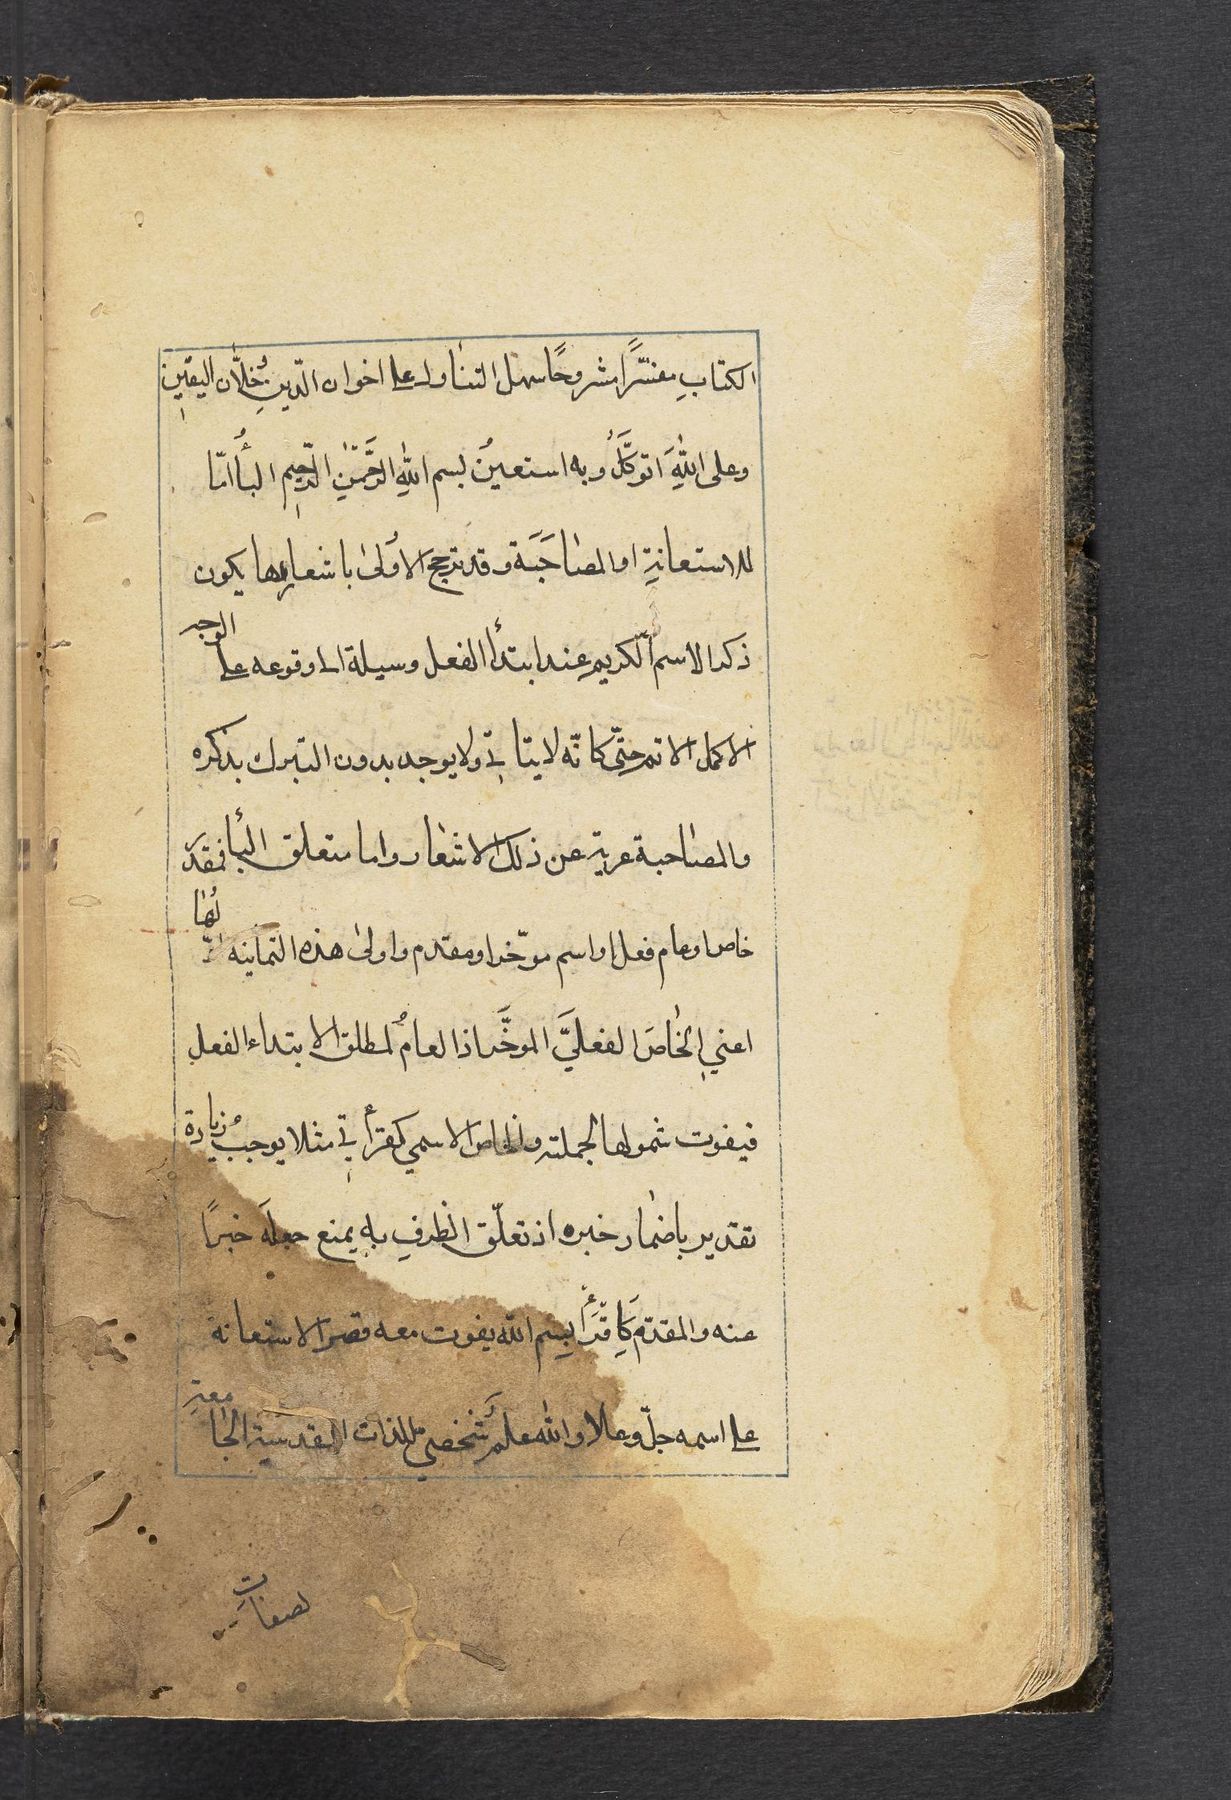 الكتابِ مفسَّرًا مشروحًا سهل التناول على اخوان الدّينِ وخُلّان اليقينِ
وعلى اللهِ اتوكَّلُ وبه استعينُ بسم اللهِ الرَّحمٰنِ الرَّحيمِ البأُ امّا
للاستعانةِ او المصاحَبَة وقد ترجح الاُولىٰ باشعارها يكون
ذكر الاسم الكريم عند ابتداٴ الفعل وسيلة الى وقوعه على الوجه
الاكمل الاتم حتّى كانّه لا يتاتى ولا يوجد بدون التبرك بذكره
والمصاحبة عرية عن ذلك الاشعار واما متعلق الباٴ فمقدر
خاص او عام فعل او اسم موٴخر او مقدم واولىٰ هذه الثمانية اوّلُها
اعني الخاصَ الفعليَّ الموٴخَّر اذ العامُ لمطلق الابتداء الفعل
فيفوت شمولها لجملته والخاص الاسمي كقرأتي مثلا يوجبُ زيادة
تقدير باضمار خبره اذ تعلّق الظرفِ به يمنع جعلَه خبرًا
عنه والمقدّم كَاِقرَأُ بسم الله يفوت معه قصر الاستعانة
على اسمه جلّ وعلا والله علم شخصي للذات المقدسة الجامعةِ
لصفاتِ